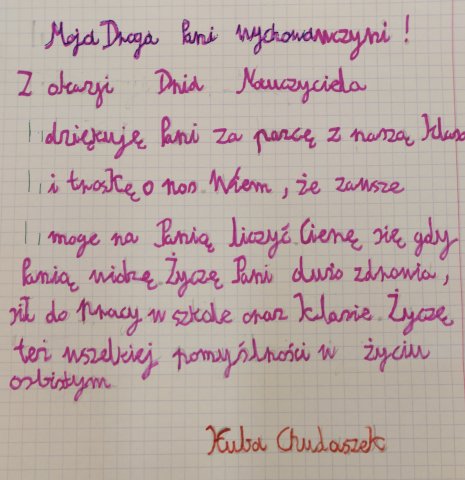 Moja Droga Pani wychowawczyni!
Z okazji Dnia Nauczyciela
dziękuję Pani za parcę z naszą klasą
i troskę o nos Wiem, że zawsze
moge na Panią liczyć. Cienę się gdy
Panią widzę Życzę Pani dużo zdrowia,
sił do pracy w szkole oraz klasie Życzę
też wszelkiej pomyślności w życiu
osbistym
Kuba Chudaszek